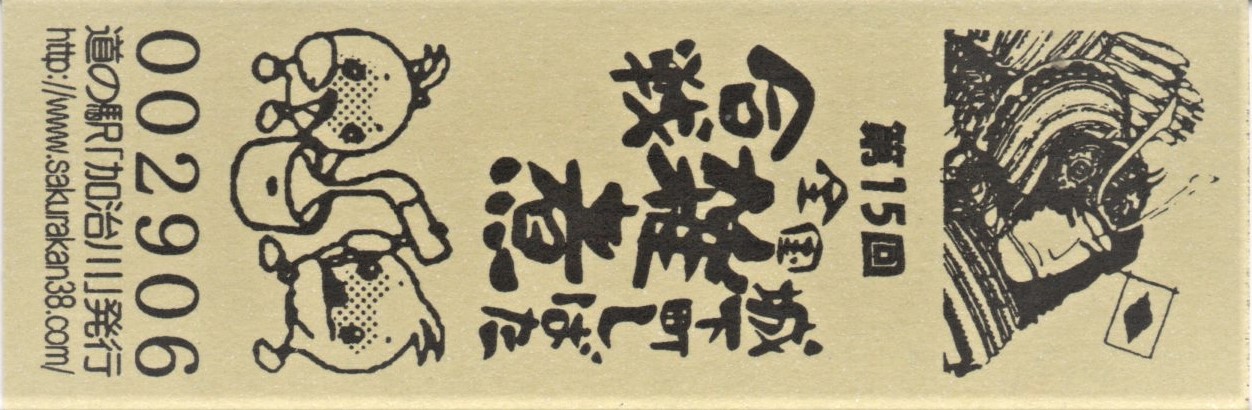 第15回
城下町しばた
全国
雑煮
合戦
002906
道の駅「加治川」発行
http://www.sakurakan38.com/